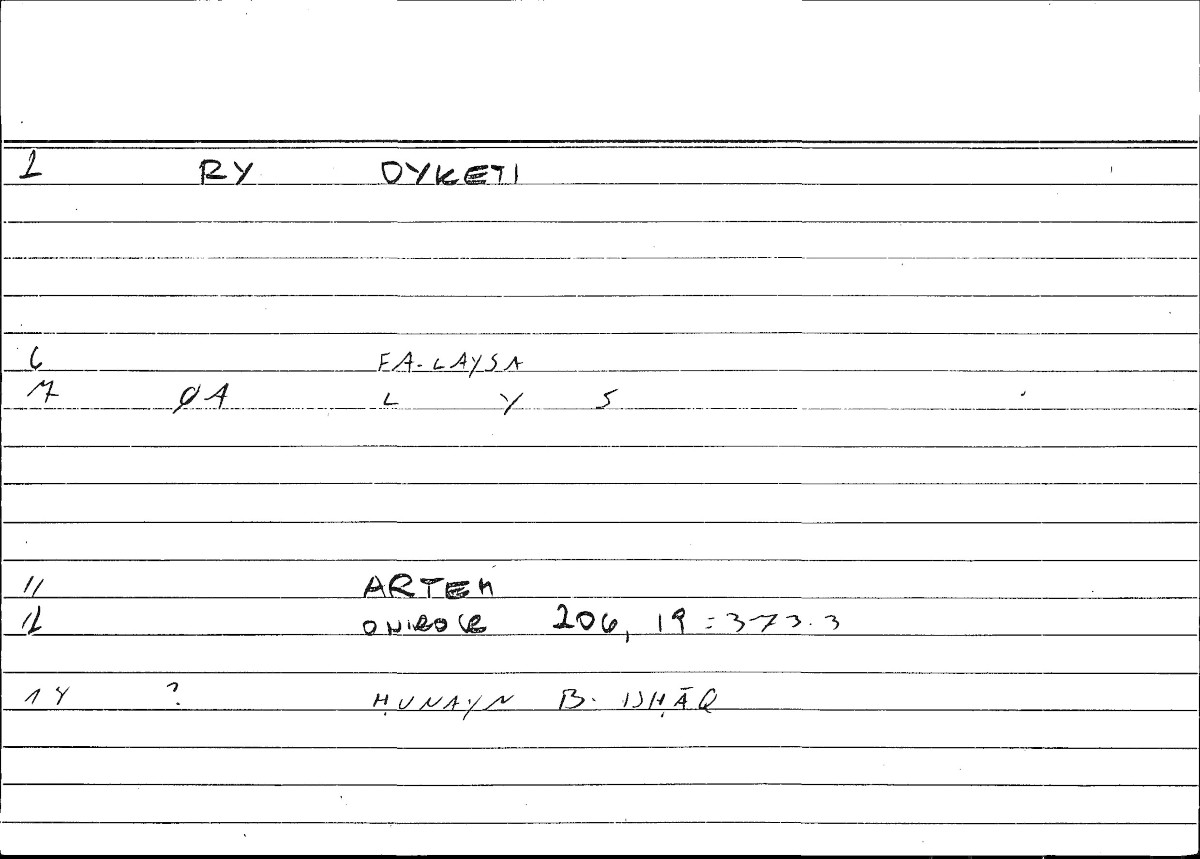 1 RY OYKETI
6 FA-LAYSA
7 ØA L Y S
11 ARTEM
12 ONIROCR 206, 19 = 373.3
14 ? ḤUNAYN B. ISḤĀQ